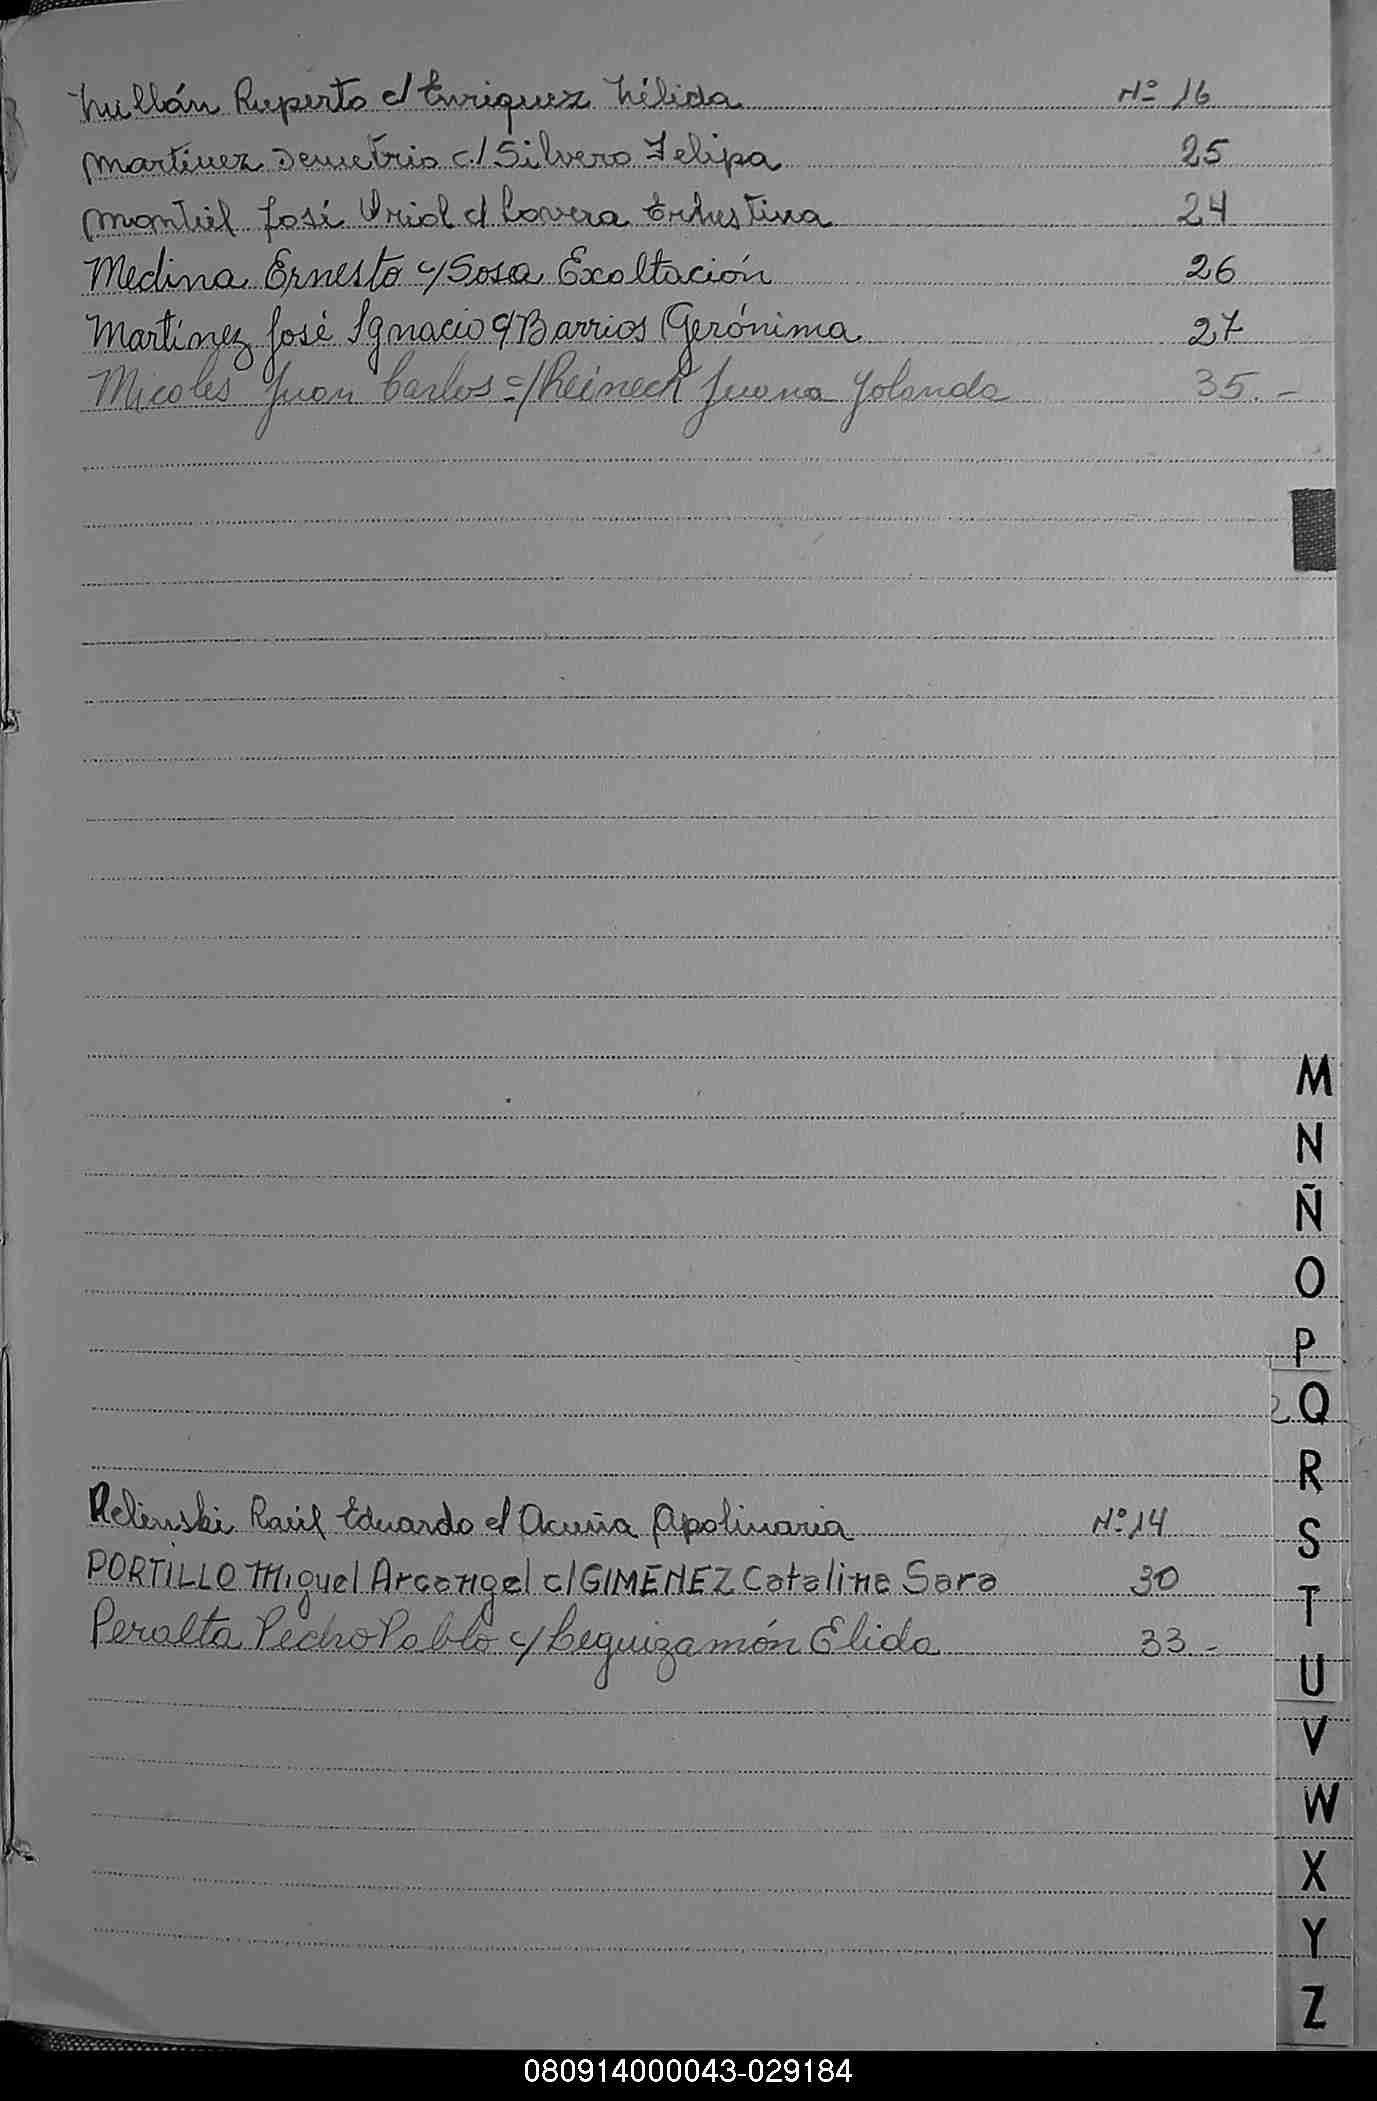 Millán Ruperto c/ Enriquez Nélida Nº 16
Martínez Demetrio c/ Silvero Felipa 25
Montiel José Oriol c/ Lovera Ernestina 24
Medina Ernesto c/ Sosa Exaltación 26
Martínez José Ignacio c/ Barrios Gerónima 27
Micoles Juan Carlos =/ Reineck Juana Yolanda 35.-
M
N
Ñ
O
P
Q
R
Relinski Raúl Eduardo c/ Acuña Apolinaria Nº 14
S
PORTILLO Miguel Arcangel c/ GIMENEZ Catalina Sara 30
T
Peralta Pedro Pablo c/ Leguizamón Elida 33.-
U
V
W
X
Y
Z
080914000043-029184